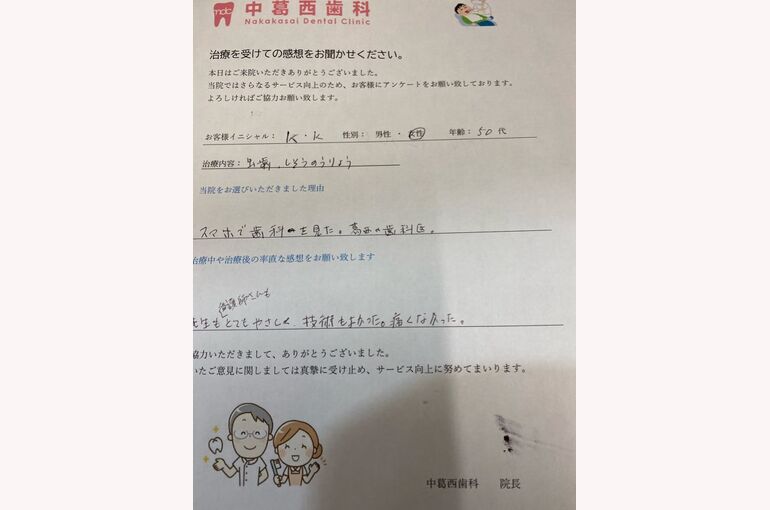 mdc
中葛西歯科
Nakakasai Dental Clinic
治療を受けての感想をお聞かせください。
本日はご来院いただきありがとうございました。
当院ではさらなるサービス向上のため、お客様にアンケートをお願い致しております。
よろしければご協力お願い致します。
お客様イニシャル： K・K 性別： 男性・女性 年齢：50代
治療内容：虫歯、しそうのうりょう
当院をお選びいただきました理由
スマホで歯科を見た。葛西の歯科医。
治療中や治療後の率直な感想をお願い致します
看護師さんも
先生もとてもやさしく、技術もよかった。痛くなかった。
協力いただきまして、ありがとうございました。
いたご意見に関しましては真摯に受け止め、サービス向上に努めてまいります。
中葛西歯科 院長